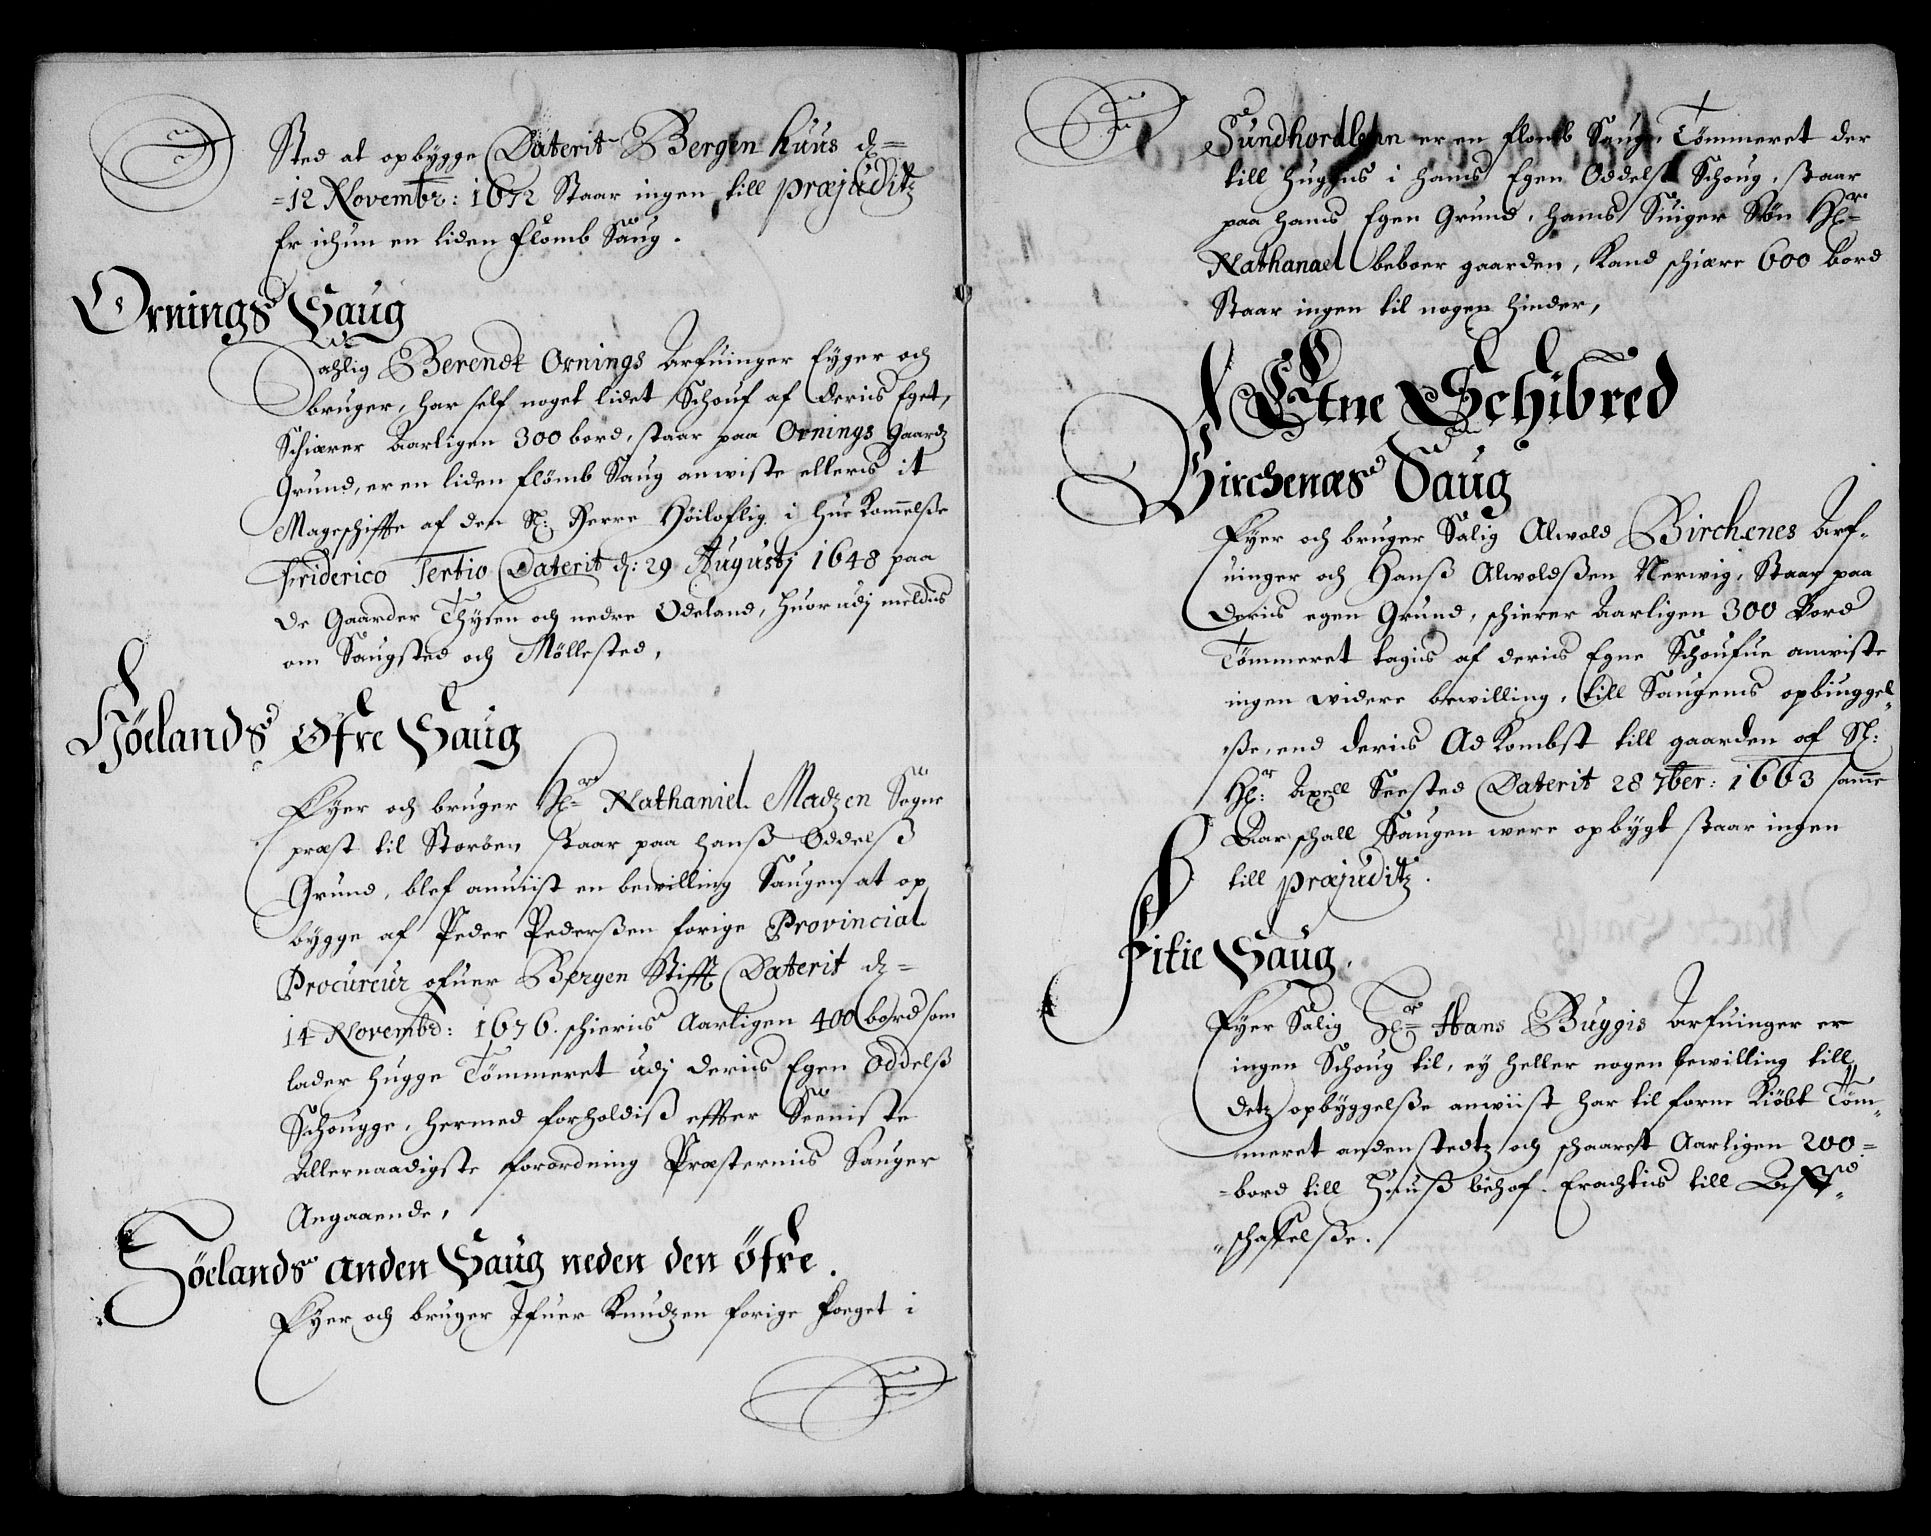 Sted at opbygge Daterit Bergen huus d=
=12 Novembr: 1672 Staar ingen till præjuditz
Er ichun en liden flomb Saug.
Ornings Saug
Sahlig Berendt Ornings Arfuinger Eyger och
bruger, har self noget lidet Schouf af deris Eget,
Schierer Aarligen 300 bord, staar paa Ornings Gaardz
Grund, er en liden flömb Saug anwiste ellers it
Mageschiffte af den Sl: Herre Höiloflig i hue Kommelsße
Friderico Tertio Daterit d: 29 Augustj 1648 paa
de Gaarder Thysen och nedre Ødeland, huor udj meldis
om Saugsted och Möllested,
Höelands Øfre Saug
Eyer och bruger Hr Nathaniel Madzen Sogne
præst til Storöen, staar paa hanß Oddelß
Grund, blef anuiist en bewilling Saugen at op
bygge af Peder Pederßen forige Provincial
Procureur ofuer Bergen Stifft Daterit d=
14 Novembr: 1676. schieris Aarligen 400 bord som
lader hugge Tömmeret udj deris Egen Oddelß
Schougge, hermed forholdiß effter Seeniste
Allernaadigste forordning Præsternis Sauger
Angaaende,
Höelands anden Saug neden den öfre.
Eyer och bruger Ifuer Knudzen forige foeget i
Sundhordlehn er en flomb Saug, Tömmeret der
till huggis i hans Egen Oddelß Schoug, staar
paa hans Egen Grund, hans Suiger Sön Hr
Nathanael beboer gaarden, Kand schiære 600 bord
Staar ingen til nogen hinder,
Etne Schibred
Birchenæs Saug
Eyer och bruger Salig Alwold Birchenes Arf-
uinger och Hanß Alwoldßen Nerwig, Staar paa
deris egen Grund, schierer Aarligen 300 Bord
Tömmeret tagis af deris Egne Schoufue anwiste
ingen widere bewilling, till Saugens opbuuggel
ße, end deris Ad Kombst till gaarden af Sl:
Hr: Axell Seested Daterit 28 7ber: 1663 samme
Aar schall Saugen were opbygt staar ingen
till præjuditz.
Fitie Saug,
Eyer Salig Hr Hans Buggis Arfuinger er
ingen Schoug til, ey heller nogen bewilling till
detz opbyggelße anwiist har til forne Kiöbt Töm-
meret andenstedtz och schaaret Aarligen 200=
=bord till Huuß behof. Erachtis till Aff
schaffelße.